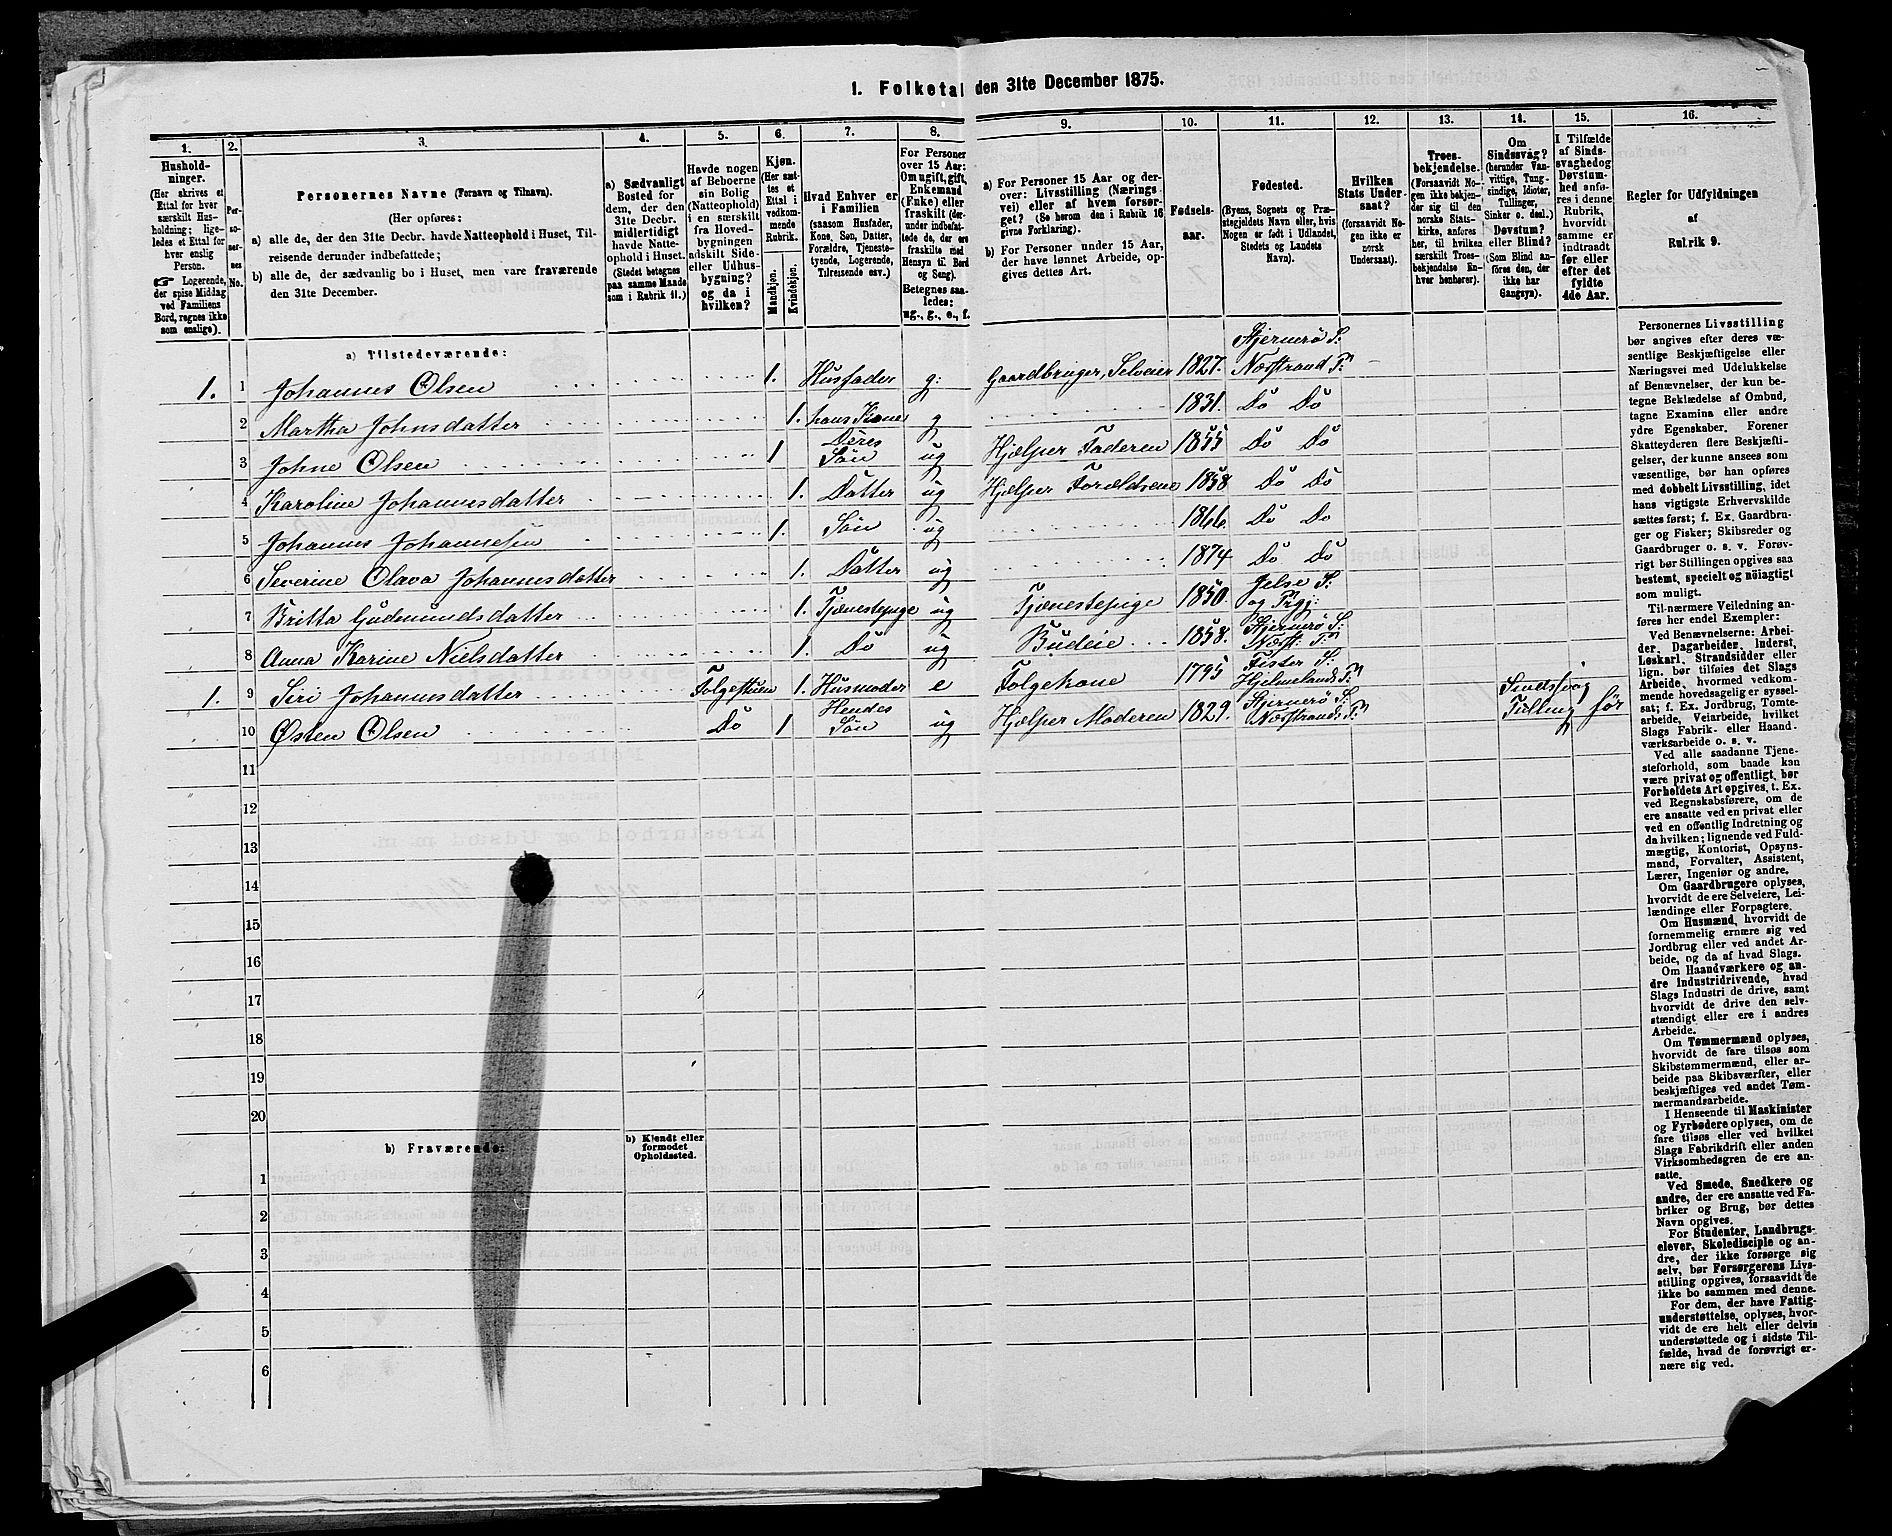 1. Folketal den 31te December 1875.
1. 2. 3. 4. 5. 6. 7. 8. 9. 10. 11. 12. 13. 14. 15. 16.
Hushold-
ninger.
(Her skrives et
Ettal for hver
særskilt Hus-
holdning; lige-
ledes et Ettal for
hver enslig
Person.
☛ Logerende,
der spise Middag
ved Familiens
Bord, regnes ikke
som enslige).
Per-
so-
ner-
nes
No.
Personernes Navne (Fornavn og Tilnavn).
(Her opføres:
a) alle de, der den 31te Decbr. havde Natteophold i Huset, Til-
reisende derunder indbefattede;
b) alle de, der sædvanlig bo i Huset, men vare fraværende
den 31te December.
a) Sædvanligt
Bosted for
dem, der den
31te Decbr.
midlertidigt
havde Natte-
ophold i Huset.
(Stedet betegnes
paa samme Maade
som i Rubrik 11.)
Havde nogen
af Beboerne
sin Bolig
(Natteophold)
i en særskilt
fra Hoved-
bygningen
adskilt Side-
eller Udhus-
bygning?
og da i
hvilken?
Kjøn.
(Her sæt-
tes et
Ettal i
vedkom-
mende
Rubrik.
Mandkjøn.
Kvindekjøn.
Hvad Enhver er
i Familien
(saasom Husfader,
Kone, Søn, Datter,
Forældre, Tjeneste-
tyende, Logerende,
Tilreisende osv.)
For Personer
over 15 Aar:
Om ugift, gift,
Enkemand
(Enke) eller
fraskilt (der-
under indbefat-
tede de, der ere
fraskilte med
Hensyn til Bord
og Seng).
Betegnes saa-
ledes:
ug., g., e., f.
a) For Personer 15 Aar og der-
over: Livsstilling (Nærings-
vei) eller af hvem forsør-
get? (Se herom den i Rubrik 16
givne Forklaring).
b) For Personer under 15 Aar,
der have lønnet Arbeide, op-
gives dettes Art.
Fødsels-
aar.
Fødested.
(Byens, Sognets og Præ-
stegjeldets Navn eller, hvis
Nogen er født i Udlandet,
Stedets og Landets
Navn).
Hvilken
Stats Under-
saat?
(forsaavidt No-
gen ikke er
norsk
Undersaat).
Troes-
bekjendelse.
(Forsaavidt No-
gen ikke bekjen-
der sig til den
norske Stats-
kirke, anføres
her, til hvilken
særskilt Troes-
bekjendelse En-
hver henhører).
Om
Sindssvag?
(herunder Van-
vittige, Tung-
sindige, Idioter,
Tullinger,
Sinker o. desl.)
Døvstum?
eller Blind?
(Som Blind an-
føres den, der
ikke har
Gangsyn).
I Tilfælde
af Sinds-
svaghed og
Døvstum-
hed anfø-
res i denne
Rubrik,
hvorvidt
samme er
indtraadt
før eller
efter det
fyldte
4de Aar.
Regler for Udfyldningen
af
Rubrik 9.
a) Tilstedeværende:
1. 1 Johannes Olsen 1. Husfader g: Gaardbruger, Selveier 1827. Stjernerø S: Næstrand Pr
2 Martha Johnsdatter 1. hans Kone g 1831. Do Do
3 Johne Olsen 1 Deres Søn ug Hjælper Faderen 1855 Do Do
4 Karoline Johannesdatter 1. Datter ug Hjælper Forældrene 1858 Do Do
5 Johannes Johannesen 1. Søn ug 1866 Do Do
6 Severine Olava Johannesdatter 1. Datter ug 1874 Do Do
7 Britta Gudmundsdatter 1. Tjenestepige ug Tjænestepige 1850 Jelse S: og Prgj:
8 Anna Karine Nielsdatter 1. Do ug Budeie 1858. Stjernerø S: Næst: Pr
1. 9 Siri Johannesdatter Folgestuen 1. Husmoder e Folgekone 1795 Fister S: Hjelmelands Pr
10 Østen Olsen Do 1 Hendes Søn ug Hjælper Moderen 1829. Stjernerø S: Næstrands Pr Sindssvag Tulling før
11
12
13
14
15
16
17
18
19
20
b) Fraværende:
b) Kjendt eller
formodet
Opholdssted.
1
2
3
4
5
6
Personernes Livsstilling
bør angives efter deres væ-
sentlige Beskjæftigelse eller
Næringsvei med Udelukkelse
af Benævnelser, der kun be-
tegne Beklædelse af Ombud,
tagne Examina eller andre
ydre Egenskaber. Forener
Skatteyderen flere Beskjæfti-
gelser, der kunne ansees som
væsentlige, bør han opføres
med dobbelt Livsstilling, idet
hans vigtigste Erhvervskilde
sættes først; f. Ex. Gaardbru-
ger og Fisker; Skibsreder og
Gaardbruger o. s. v. Forøv-
rigt bør Stillingen opgives saa
bestemt, specielt og nöiagtigt
som muligt.
Til nærmere Veiledning an-
føres her endel Exempler:
Ved Benævnelserne: Arbei-
der, Dagarbeider, Inderst,
Løskarl, Strandsidder eller
lign. bør tilføies det Slags
Arbeide, hvormed vedkom-
mende hovedsagelig er syssel-
sat; f. Ex. Jordbrug, Tomte-
arbeide, Veiarbeide, hvilket
Slags Fabrik- eller Haand-
værksarbeide o. s. v.
Ved alle saadanne Tjene-
steforhold, som baade kan
være privat og offentligt, bør
Forholdets Art opgives, t. Ex.
ved Regnskabsførere, om de
ere ansatte ved en privat eller
ved en offentlig Indretning og
da hvilken; lignende ved Fuld-
mægtig, Kontorist, Opsyns-
mand, Forvalter, Assistent,
Lærer, Ingeniør og andre.
Om Gaardbrugere oplyses,
hvorvidt de ere Selveiere, Lei-
lændinge eller Forpagtere.
Om Husmænd, hvorvidt de
fornemmelig ernære sig ved
Jordbrug eller ved andet Ar-
beide, og da af hvad Slags.
Om Haandværkere og an-
dre industridrivende, hvad
Slags Industri de drive, samt
hvorvidt de drive den selv-
stændigt eller ere i andres
Arbeide.
Om Tømmermænd oplyses,
hvorvidt de fare tilsøs som
Skibstømmermænd, eller ar-
beide paa Skibsværfter, eller
beskjæftiges ved andet Tøm-
mermandsarbeide.
I Henseende til Maskinister
og Fyrbødere oplyses, om de
fare tilsøs eller ved hvilket
Slags Fabrikdrift eller anden
Virksomhedsgren de ere an-
satte.
Ved Smede, Snedkere og
andre, der ere ansatte ved Fa-
briker og Brug, bør dettes
Navn opgives.
For Studenter, Landbrugs-
elever, Skoledisciple og an-
dre, der ikke forsørge sig
selv, bør Forsørgerens Livs-
stilling opgives, forsaavidt de
ikke bo sammen med denne.
For dem, der have Fattig-
understøttelse, oplyses, hvor-
vidt de ere helt eller delvis
understøttede og i sidste Til-
fælde, hvad de forøvrigt er-
nære sig ved.